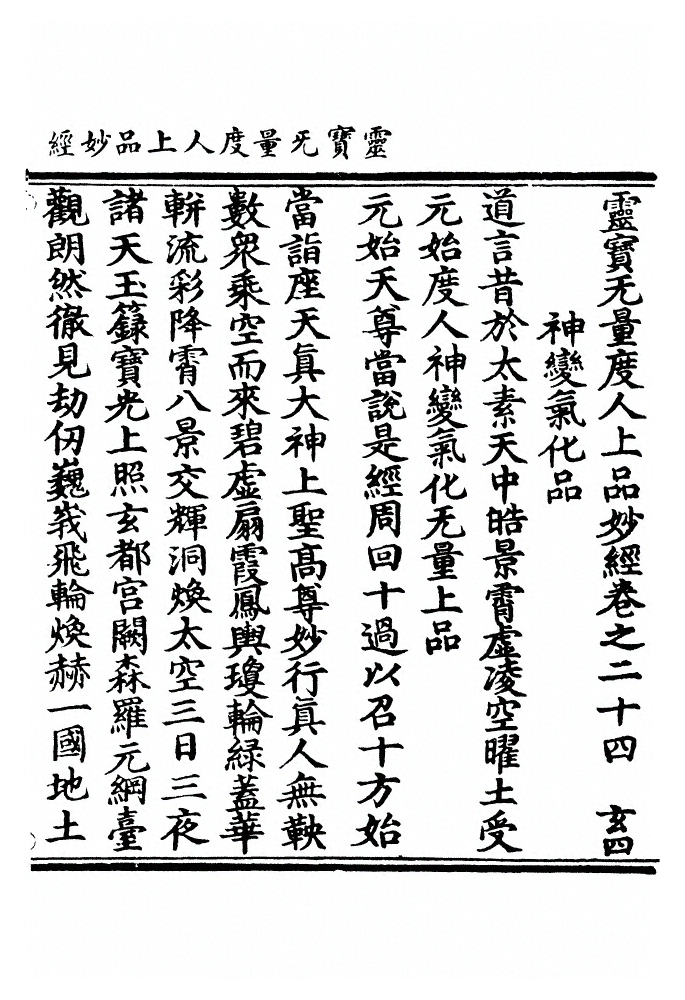 靈寶无量度人上品妙經
靈寶无量度人上品妙經卷之二十四 玄四
神變氣化品
道言昔於太素天中皓景霄虛凌空曜土受
元始度人神變氣化无量上品
元始天尊當說是經周回十過以召十方始
當詣座天眞大神上聖高尊妙行眞人無鞅
數衆乘空而來碧虛扇霞鳳輿瓊輪綠蓋華
輧流彩降霄八景交輝洞煥太空三日三夜
諸天玉籙寶光上照玄都宮闕森羅元綱臺
觀朗然徹見劫仞巍峩飛輪煥赫一國地土